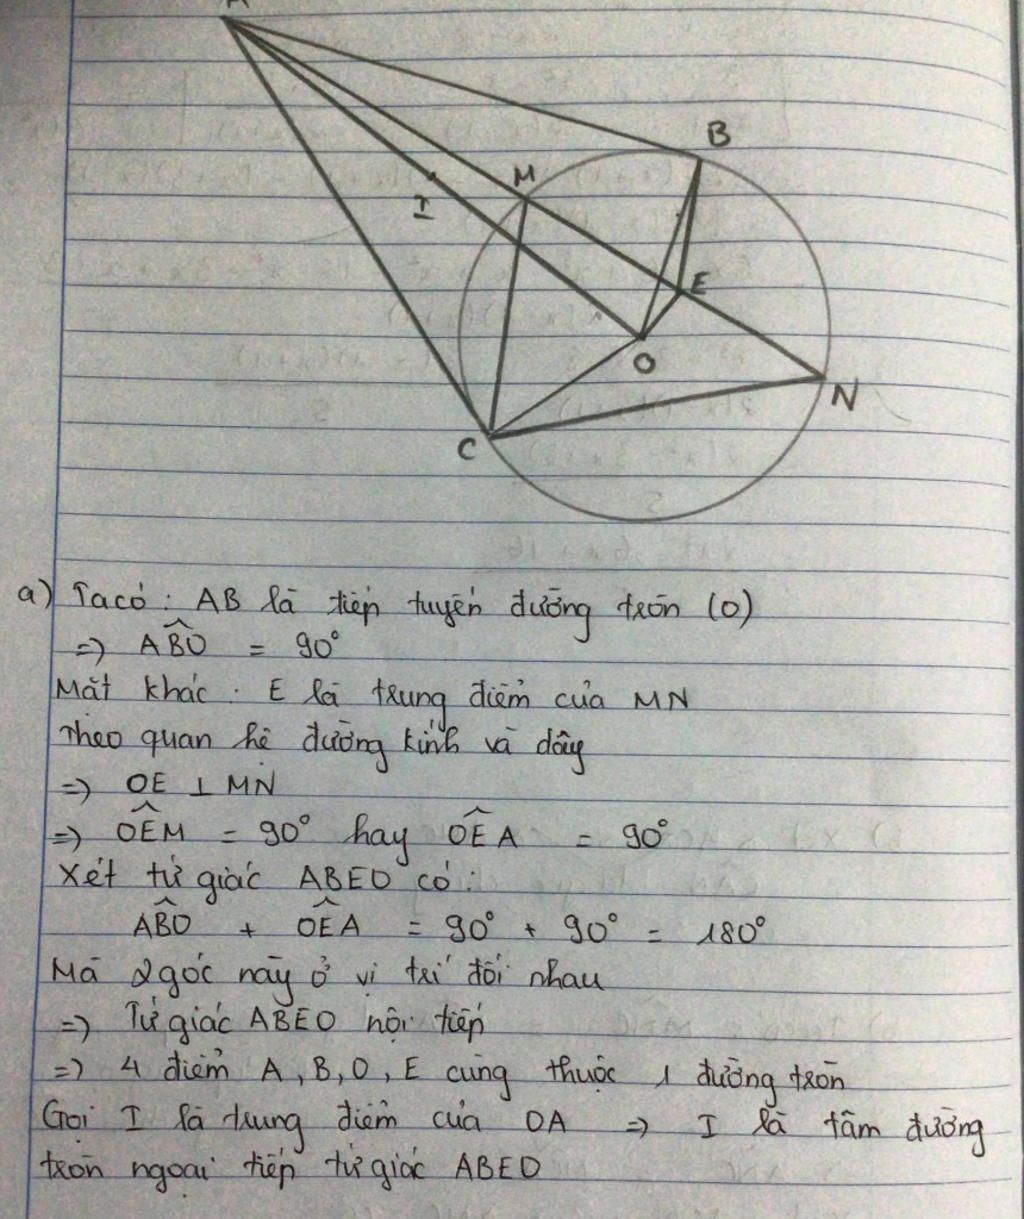 A
B
M
I
E
O
N
C
a) Ta có: AB là tiếp tuyến đường tròn (O)
=> ABO = 90°
Mặt khác: E là trung điểm của MN
Theo quan hệ đường kính và dây
=> OE ⊥ MN
=> OEM = 90° hay OEA = 90°
Xét tứ giác ABEO có:
ABO + OEA = 90° + 90° = 180°
Mà 2 góc này ở vị trí đối nhau
=> Tứ giác ABEO nội tiếp
=> 4 điểm A, B, O, E cùng thuộc 1 đường tròn
Gọi I là trung điểm của OA => I là tâm đường
tròn ngoại tiếp tứ giác ABEO